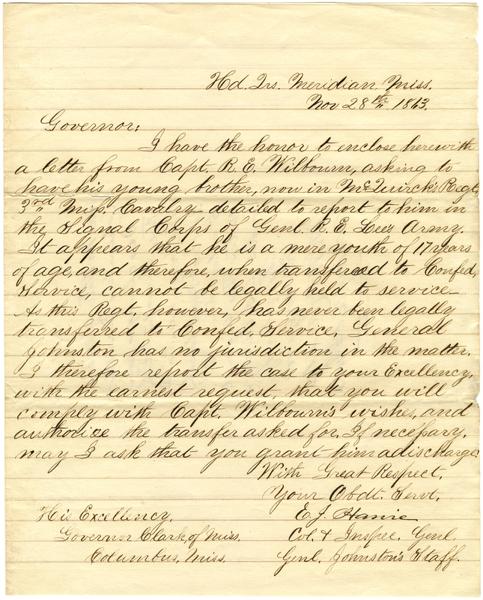 Hd. Qrs. Meridian Miss.
Nov 28th 1863.
Governor:
I have the honor to enclose herewith
a letter from Capt. R. E. Wilbourn, asking to
have his young brother, now in McGuirck's Regt.
3rd Miss. Cavalry detailed to report to him in
the Signal Corps of Genl. R. E. Lee's Army.
It appears that he is a mere youth of 17 years
of age, and therefore, when transfered to Confed.
Service, cannot be legally held to service.
As this Regt. however, has never been legally
transferred to Confed. Service, General
Johnston has no jurisdiction in the matter.
I therefore report the case to your Excellency,
with the earnest request, that you will
comply with Capt. Wilbourn's wishes, and
authorize the transfer asked for. If necessary,
may I ask that you grant him a discharge.
With Great Respect,
Your Obdt. Servt.
E. J.
His Excellency, Col. & Inspec. Genl.
Governor Clark, of Miss. Genl. Johnston's Staff.
Columbus, Miss.